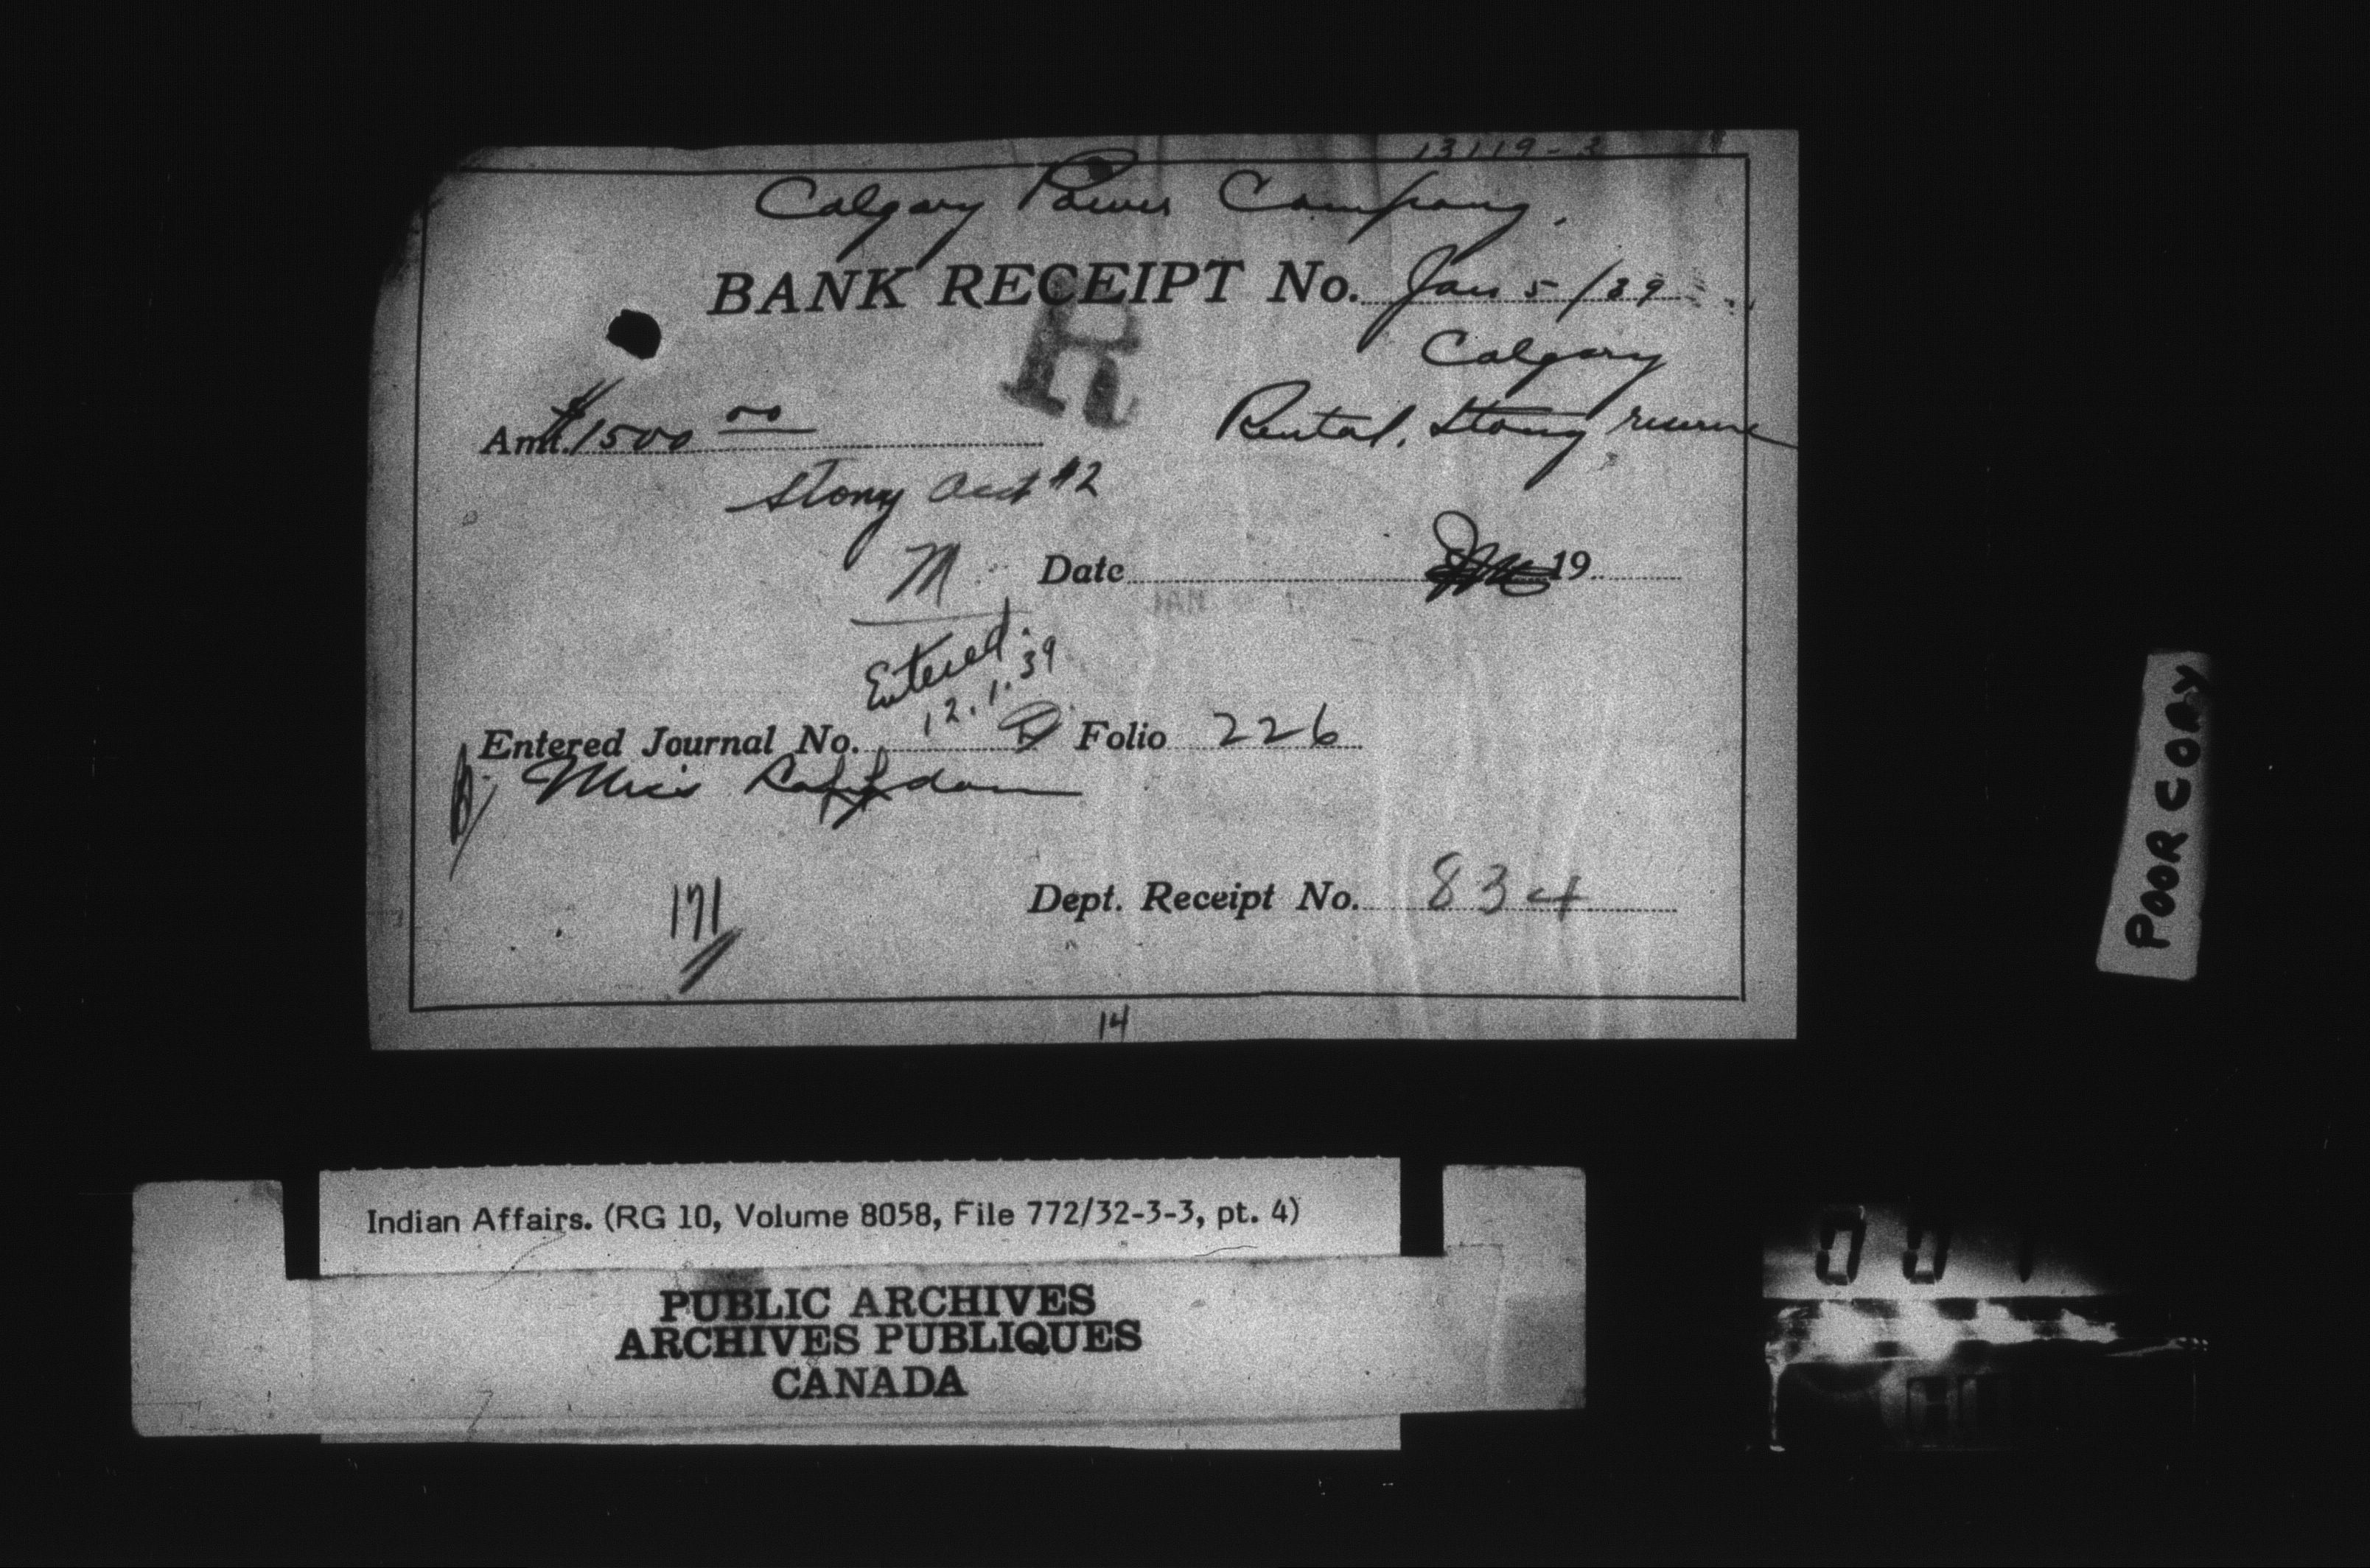 13119-3
Calgary Power Company.
BANK RECEIPT No. Jan 5/39
R
Calgary
Amt. $1500 00
Rental. Stony reserve
Stony acct #2
M
Date 19
JAN
Entered
12.1.39
Entered Journal No. Folio 226
Miss
171
Dept. Receipt No. 834
14
POOR COPY
Indian Affairs. (RG 10, Volume 8058, File 772/32-3-3, pt. 4)
PUBLIC ARCHIVES
ARCHIVES PUBLIQUES
CANADA